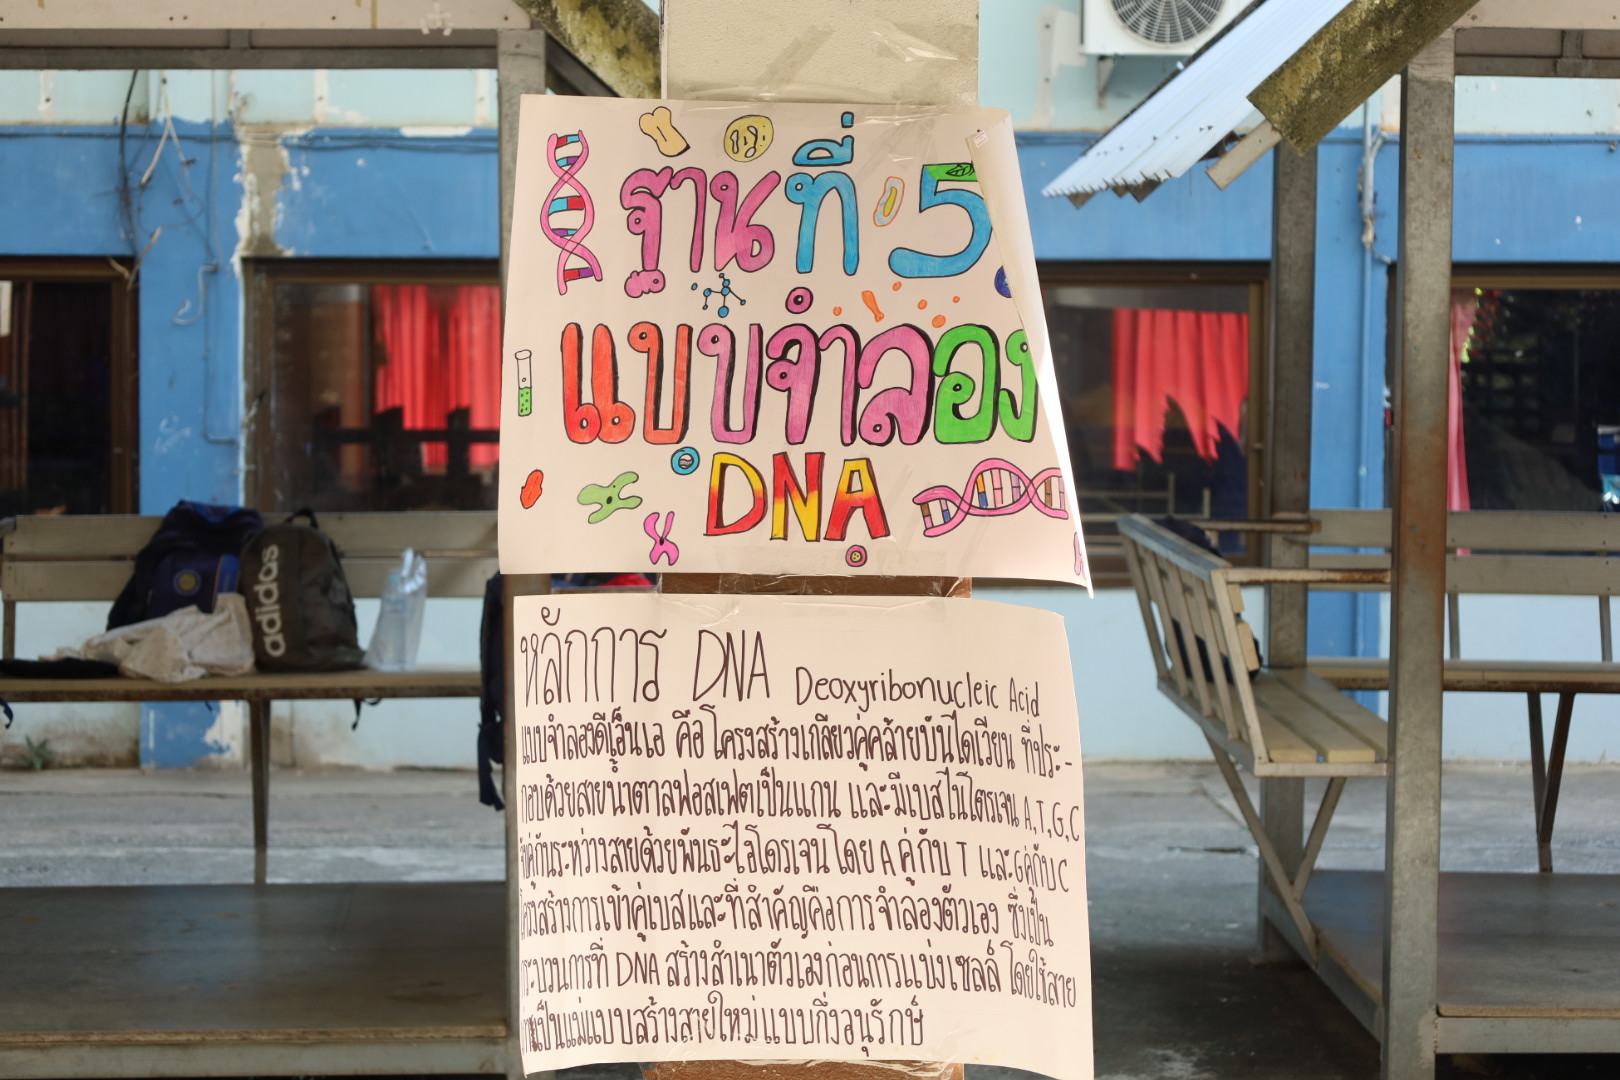 ฐานที่ 5
แบบจำลอง
DNA
adidas
หลักการ DNA Deoxyribonucleic Acid
แบบจำลองดีเอ็นเอ คือ โครงสร้างเกลียวคู่คล้ายบันไดเวียน ที่ประ-
กอบด้วยสายน้ำตาลฟอสเฟตเป็นแกน และมีเบสไนโตรเจน A,T,G,C
จับคู่กันระหว่างสายด้วยพันธะไฮโดรเจนโดย A คู่กับ T และ G คู่กับ C
โครงสร้างการเข้าคู่เบสและที่สำคัญคือการจำลองตัวเอง ซึ่งเป็น
กระบวนการที่ DNA สร้างสำเนาตัวเองก่อนการแบ่งเซลล์ โดยใช้สาย
เป็นแม่แบบสร้างสายใหม่แบบกึ่งอนุรักษ์